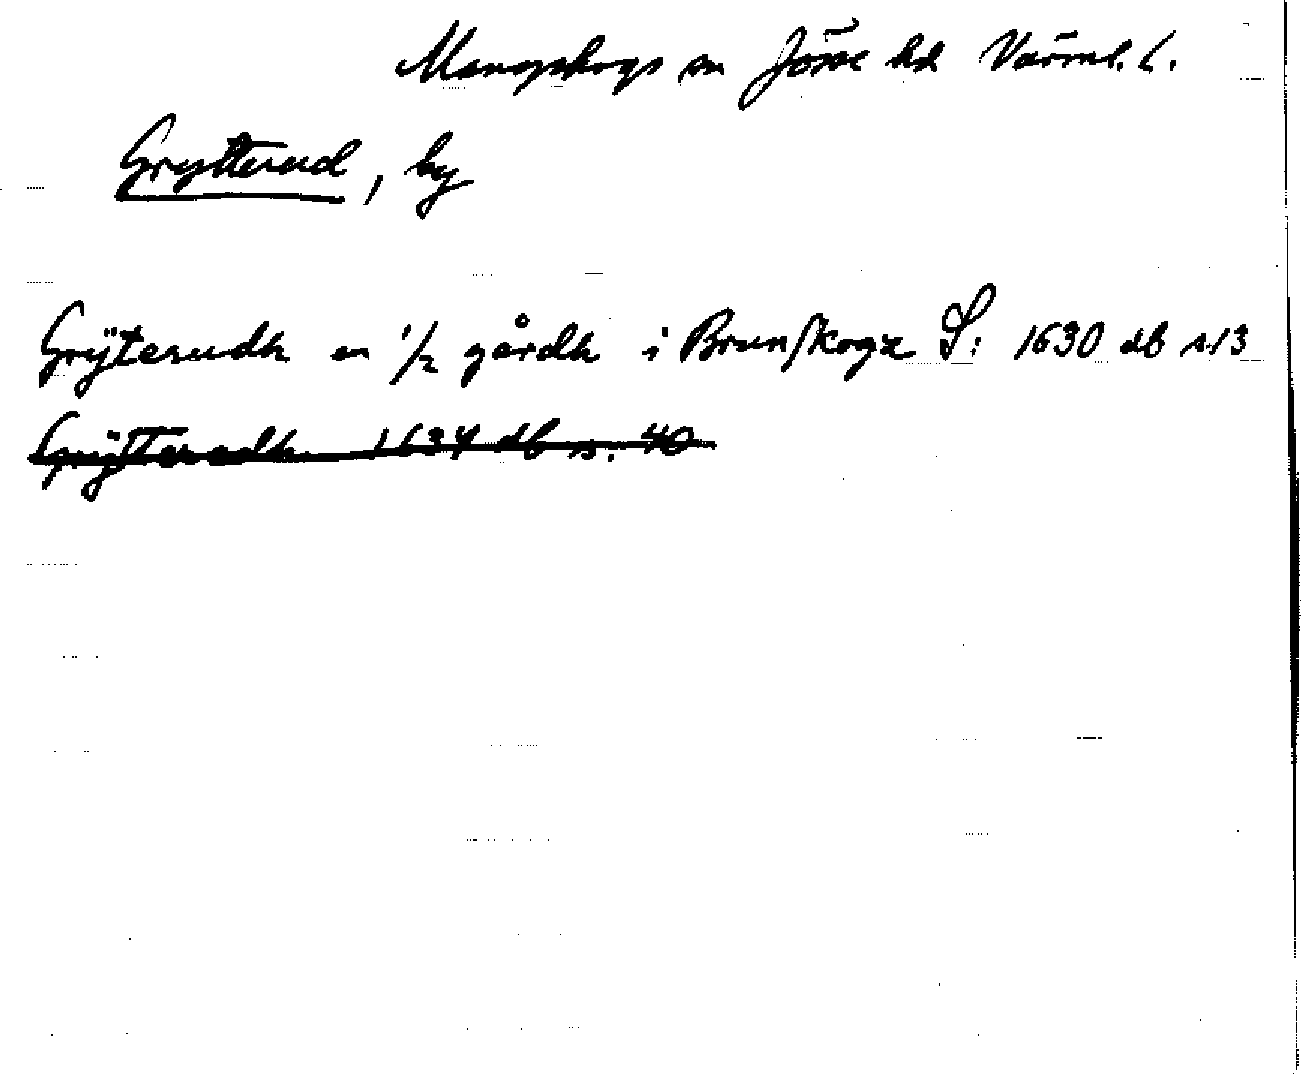 Mangskogs sn Jösse hd Värml. l.
Grytterud, by
Grÿterudh en 1/2 gårdh i Brunſkogx S: 1630 db s 13
Grÿtterudh 1634 db s. 40